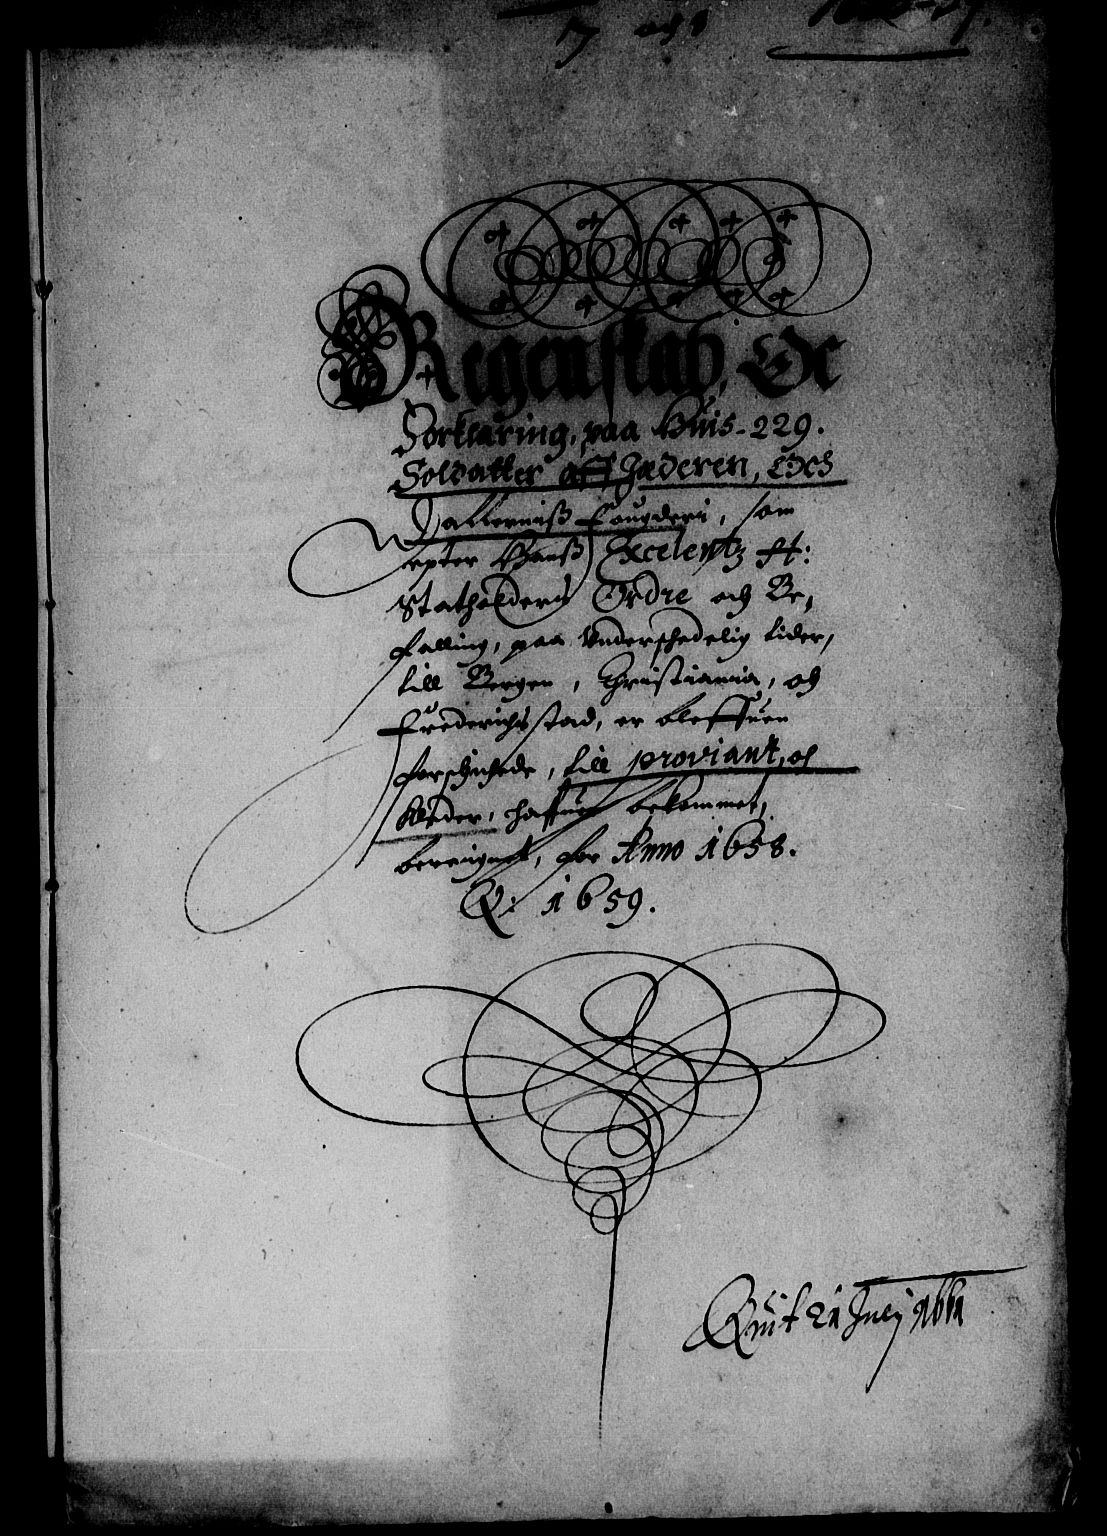 7 och 8
Regenskab, Oc
Forklaring, paa Huis - 229.
Soldatter aff Jæderen, Och
Dallerniß Fougderi, som
epter Hanß Excelentz Hr:
Statholders Ordre och Be,
falling, paa Vnderschedelig tider,
till Bergen, Christiania, och
Frederichsstad, er bleffuen
forschichede, till proviant, och
Klæder, haffuer bekommet,
beregnet, for Anno 1658.
&: 1659.
Quit 21 Julj 1661